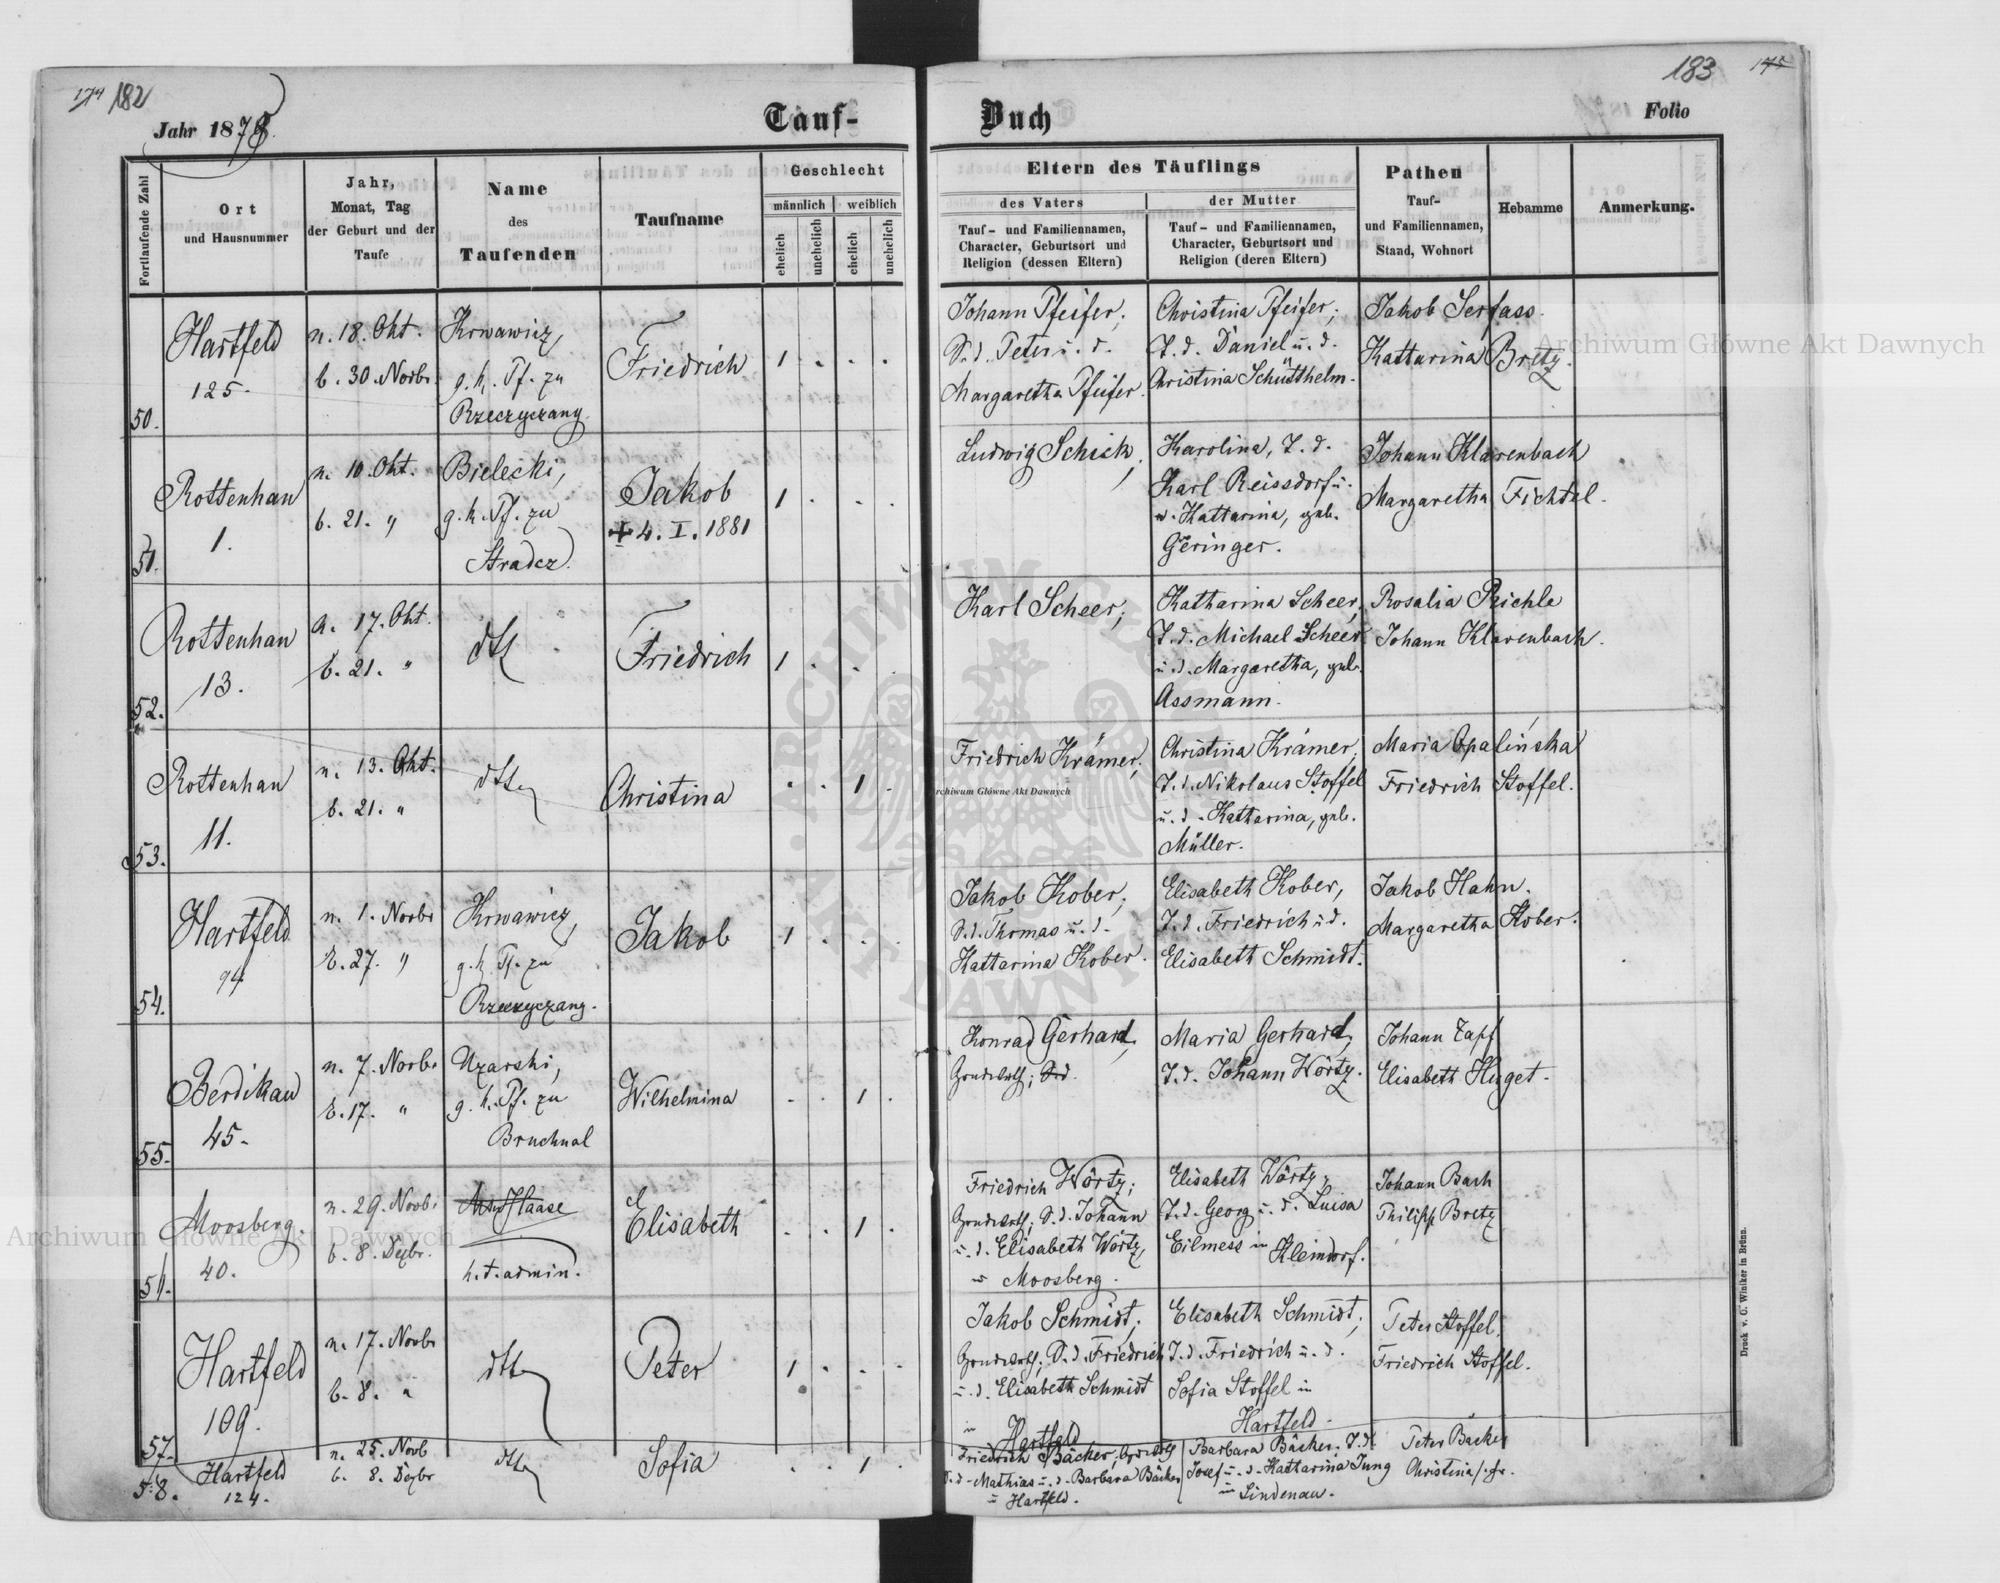 182
183
Jahr 1878.
Tauf-
Buch
Folio
Fortlaufende Zahl
Ort
und Hausnummer
Jahr,
Monat, Tag
der Geburt und der
Taufe
Name
des
Taufenden
Taufname
Geschlecht
männlich
weiblich
ehelich
unehelich
ehelich
unehelich
Eltern des Täuflings
des Vaters
der Mutter
Tauf- und Familiennamen,
Character, Geburtsort und
Religion (dessen Eltern)
Tauf- und Familiennamen,
Character, Geburtsort und
Religion (deren Eltern)
Pathen
Tauf-
und Familiennamen,
Stand, Wohnort
Hebamme
Anmerkung.
50.
Hartfeld
125.
n. 18. Okt.
b. 30. Novbr.
Krwawicz,
g. k. Pf. zu
Rzeczyczany.
Friedrich
1 . . .
Johann Pfeifer;
S. d. Peter u. d.
Margaretha Pfeifer.
Christina Pfeifer;
T. d. Daniel u. d.
Christina Schütthelm.
Jakob Serfass.
Kattarina Bretz.
51.
Rottenhan
1.
n. 10. Okt.
b. 21. "
Bielecki,
g. k. Pf. zu
Stradcz.
Jakob
+ 4. I. 1881
1 . . .
Ludwig Schick,
Karolina, T. d.
Karl Reissdorf u.
d. Kattarina, geb.
Geringer.
Johann Klarenbach
Margaretha Fichtel.
52.
Rottenhan
13.
n. 17. Okt.
b. 21. "
dtto
Friedrich
1 . . .
Karl Scheer;
Katharina Scheer,
T. d. Michael Scheer
u. d. Margaretha, geb.
Assmann.
Rosalia Richle
Johann Klarenbach.
53.
Rottenhan
11.
n. 13. Okt.
b. 21. "
dtto
Christina
. . 1 .
Friedrich Krämer;
Christina Krämer,
T. d. Nikolaus Stoffel
u. d. Katharina, geb.
Müller.
Maria Opalińska
Friedrich Stoffel.
54.
Hartfeld
94
n. 1. Novbr
b. 27. "
Krwawicz,
g. k. Pf. zu
Rzeczyczany.
Jakob
1 . . .
Jakob Kober;
S. d. Thomas u. d.
Kattarina Kober.
Elisabeth Kober,
T. d. Friedrich u. d.
Elisabeth Schmidt.
Jakob Hahn.
Margaretha Kober.
55.
Berdikau
45.
n. 7. Novbr
b. 17. "
Uzarski,
g. k. Pf. zu
Bruchnal
Wilhelmina
. . 1 .
Konrad Gerhard,
Grundwirth; S. d.
Maria Gerhard,
T. d. Johann Wörtz.
Johann Zapf
Elisabeth Huget.
56.
Moosberg.
40.
n. 29. Novb.
b. 8. Dezbr.
Haase
h. t. admin.
Elisabeth
. . 1 .
Friedrich Wörtz;
Grundwirth; S. d. Johann
u. d. Elisabeth Wörtz,
in Moosberg.
Elisabeth Wörtz,
T. d. Georg u. d. Luisa
Eilmess in
Kleindorf.
Johann Bach
Philipp Bretz
57.
Hartfeld
109.
n. 17. Novbr
b. 8. "
dtto
Peter
1 . . .
Jakob Schmidt;
Grundwirth; S. d. Friedrich
u. d. Elisabeth Schmidt
in
Hartfeld
Elisabeth Schmidt;
T. d. Friedrich u. d.
Sofia Stoffel in
Hartfeld.
Peter Stoffel,
Friedrich Stoffel.
58.
Hartfeld
124.
n. 25. Novb
b. 8. Dezbr
dtto
Sofia
. . 1 .
Friedrich Bäcker, Grdwirth
S. d. Mathias u. d. Barbara Bäcker
Hartfeld.
Barbara Bäcker, T. d.
Josef u. d. Kattarina Jung
in Lindenau.
Peter Bäcker
Christina
Druck v. C. Winiker in Brünn.
Archiwum Główne Akt Dawnych
Archiwum Główne Akt Dawnych
Archiwum Główne Akt Dawnych